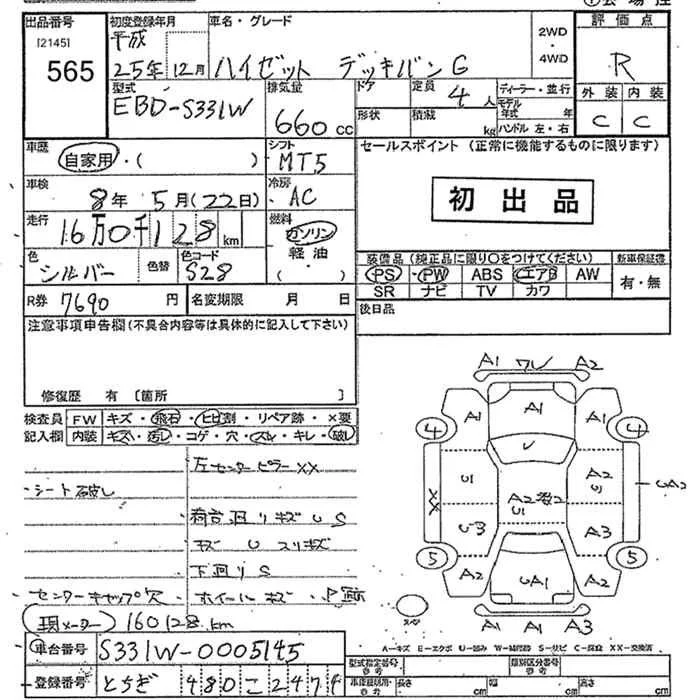 出品番号 初度登録年月 車名・グレード 2WD ・ 4WD 評価点
[2145] 平成
565 25年 12月 ハイゼット デッキバンG R
型式 排気量 ドア 定員 4人 ディーラー・並行 外装 内装
EBD-S331W 660cc 形状 積載 kg モデル年式 年 C C
ハンドル 左・右
車歴 自家用・( ) シフト MT5 セールスポイント (正常に機能するものに限ります)
車検 8年 5月(22日) 冷房 AC 初出品
走行 16万0千128km 燃料 ガソリン
軽油
・( )
色 シルバー 色替 色コード S28
装備品(純正品に限り○をつけてください) 新車保証書
PS・PW ABS エアB AW 有・無
SR ナビ TV カワ
R券 7690円 名変期限 月 日 後日品
注意事項申告欄(不具合内容等は具体的に記入して下さい)
修復歴 有 〔箇所 〕
検査員 FW キズ・飛石・ヒビ割・リペア跡・×要
記入欄 内装 キズ・汚レ・コゲ・穴・スレ・キレ・破レ
左センターピラーXX
・シート破レ
荷台回リキズ U S
キズ U スリキズ
下回リS
センターキャップ穴 ホイールキズ
(現メーター) 160128km
車台番号 S331W-0005145
登録番号 とちぎ 480 こ 2474
A1 ワレ A2
A1 A1 A1
4 4
U1 A2 U1
XX A2 U1 UA2
U-3 A3
5 5
A2 UA1 A2
スペ
A1 A1 A3
A-キズ E-エクボ U-凹み W-補修跡 S-サビ C-腐食 XX-交換済
型式指定番号 参考 類別区分番号 参考
車検証規格 参考 長さ cm 幅 cm 高さ cm